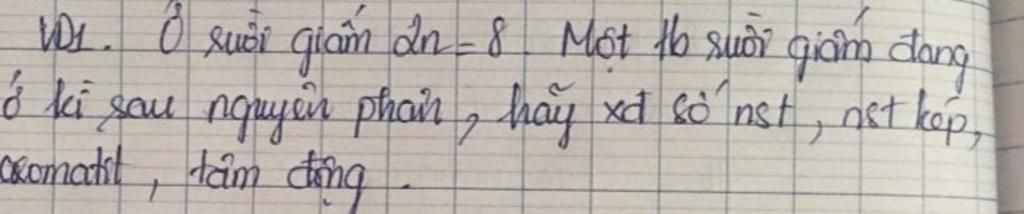 VD1. Ở ruồi giấm 2n = 8. Một tb ruồi giấm đang
ở kì sau nguyên phân, hãy xđ số nst, nst kép,
cromatit, tâm động.